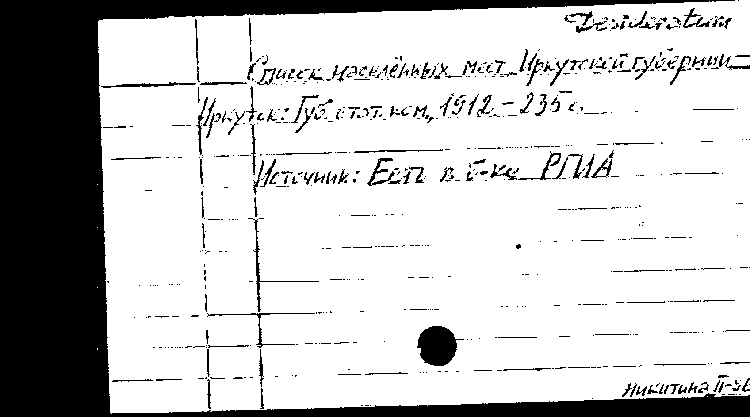 Desideratum
Список населённых мест Иркутской губернии —
Иркутск: Губ. стат. ком., 1912 – 235 с.
Источник: Есть в б-ке РГИА
Никитина II-